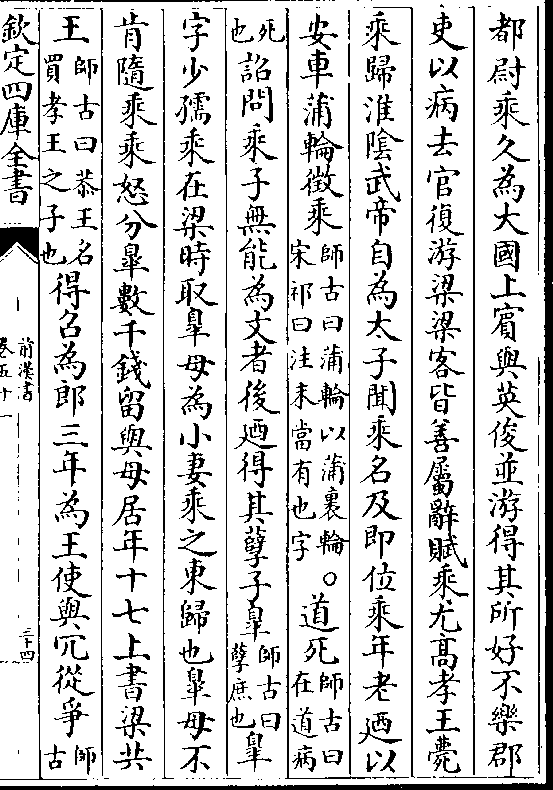 都尉乘久為大國上賓與英俊並游得其所好不樂郡
吏以病去官復游梁梁客皆善屬辭賦乘尤高孝王薨
乘歸淮隂武帝自為太子聞乘名及即位乘年老廼以
安車蒲輪徵乘師古曰蒲輪以蒲裹輪宋祁曰注末當有也字○道死師古曰在道病
死也詔問乘子無能為文者後廼得其孽子臯師古曰孽庶也臯
字少孺乘在梁時取臯母為小妻乘之東歸也臯母不
肯隨乘乘怒分臯數千錢留與母居年十七上書梁共
王師古曰恭王名買孝王之子也得召為郎三年為王使與宂從爭師古
欽定四庫全書
前漢書
卷五十一
三十四